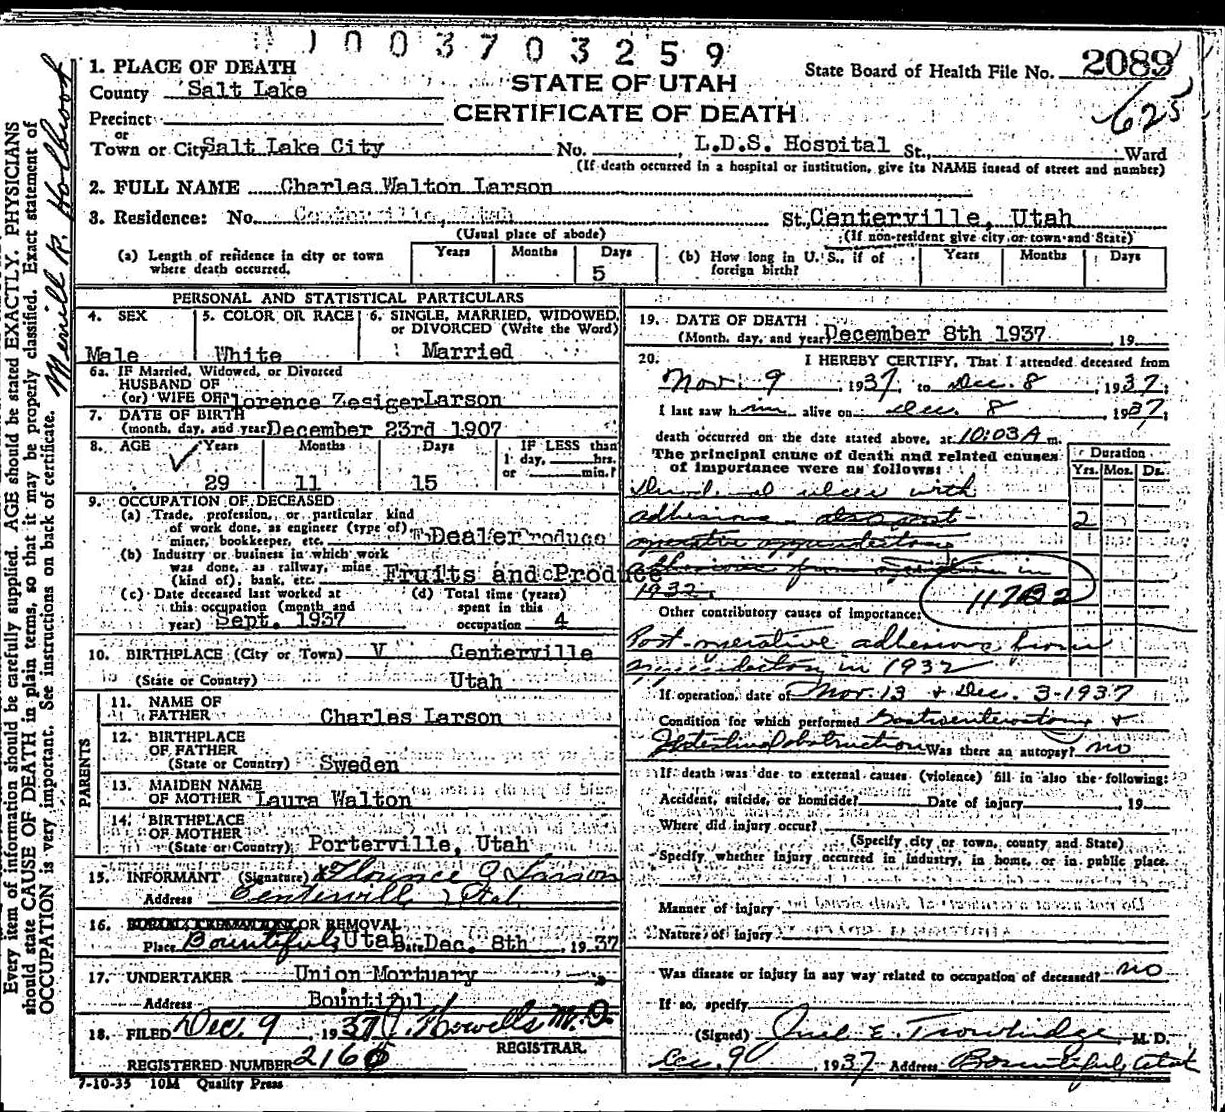 1003703259
1. PLACE OF DEATH
STATE OF UTAH
State Board of Health File No. 2089
County Salt Lake
CERTIFICATE OF DEATH
625
Precinct
or
Town or City Salt Lake City No. L.D.S. Hospital St., Ward
(If death occurred in a hospital or institution, give its NAME insead of street and number)
2. FULL NAME Charles Walton Larson
3. Residence: No. Centerville, Utah St. Centerville, Utah
(Usual place of abode) (If non-resident give city or town and State)
(a) Length of residence in city or town where death occurred. Years Months Days 5
(b) How long in U. S., if of foreign birth? Years Months Days
PERSONAL AND STATISTICAL PARTICULARS
4. SEX 5. COLOR OR RACE 6. SINGLE, MARRIED, WIDOWED, or DIVORCED (Write the Word)
Male White Married
6a. IF Married, Widowed, or Divorced
HUSBAND OF
(or) WIFE OF Florence Zesiger Larson
7. DATE OF BIRTH
(month, day, and year December 23rd 1907
8. AGE Years Months Days IF LESS than
1 day, hrs.
or min.?
29 11 15
9. OCCUPATION OF DECEASED
(a) Trade, profession, or particular kind
of work done, as engineer (type of)
miner, bookkeeper, etc. Dealer Produce
(b) Industry or business in which work
was done, as railway, mine
(kind of), bank, etc. Fruits and Produce
(c) Date deceased last worked at
this occupation (month and
year) Sept. 1937
(d) Total time (years)
spent in this
occupation 4
10. BIRTHPLACE (City or Town) V Centerville
(State or Country) Utah
PARENTS
11. NAME OF
FATHER Charles Larson
12. BIRTHPLACE
OF FATHER
(State or Country) Sweden
13. MAIDEN NAME
OF MOTHER Laura Walton
14. BIRTHPLACE
OF MOTHER
(State or Country) Porterville, Utah
15. INFORMANT (Signature) Florence Z Larson
Address Centerville Utah
16. BURIAL, CREMATION OR REMOVAL
Place Bountiful, Utah Date Dec. 8th, 1937
17. UNDERTAKER Union Mortuary
Address Bountiful
18. FILED Dec. 9 1937 Howells M.D.
REGISTRAR.
REGISTERED NUMBER 2166
7-10-35 10M Quality Press
19. DATE OF DEATH
(Month, day, and year December 8th 1937, 19
20. I HEREBY CERTIFY, That I attended deceased from
Nov. 9, 1937, to Dec. 8, 1937;
I last saw him alive on Dec. 8 1937;
death occurred on the date stated above, at 10:03 A m.
The principal cause of death and related causes
of importance were as follows:
Duration
Yrs. Mos. Ds.
Duodenal ulcer with
adhesions - also post- 2
operative appendectomy
adhesions from operation in
1932.
117B2
Other contributory causes of importance:
Post-operative adhesions from
appendectomy in 1932
If operation, date of Nov. 13 & Dec. 3-1937
Condition for which performed Gastroenterostomy &
Intestinal obstruction Was there an autopsy? no
If death was due to external causes (violence) fill in also the following:
Accident, suicide, or homicide? Date of injury 19
Where did injury occur?
(Specify city or town, county and State)
Specify whether injury occurred in industry, in home, or in public place.
Manner of injury
Nature of injury
Was disease or injury in any way related to occupation of deceased? no
If so, specify
(Signed) E. Trowbridge M. D.
Dec. 9, 1937 Address Bountiful, Utah
Every item of information should be carefully supplied. AGE should be stated EXACTLY. PHYSICIANS
should state CAUSE OF DEATH in plain terms, so that it may be properly classified. Exact statement of
OCCUPATION is very important. See instructions on back of certificate.
Merrill R. Holbrook